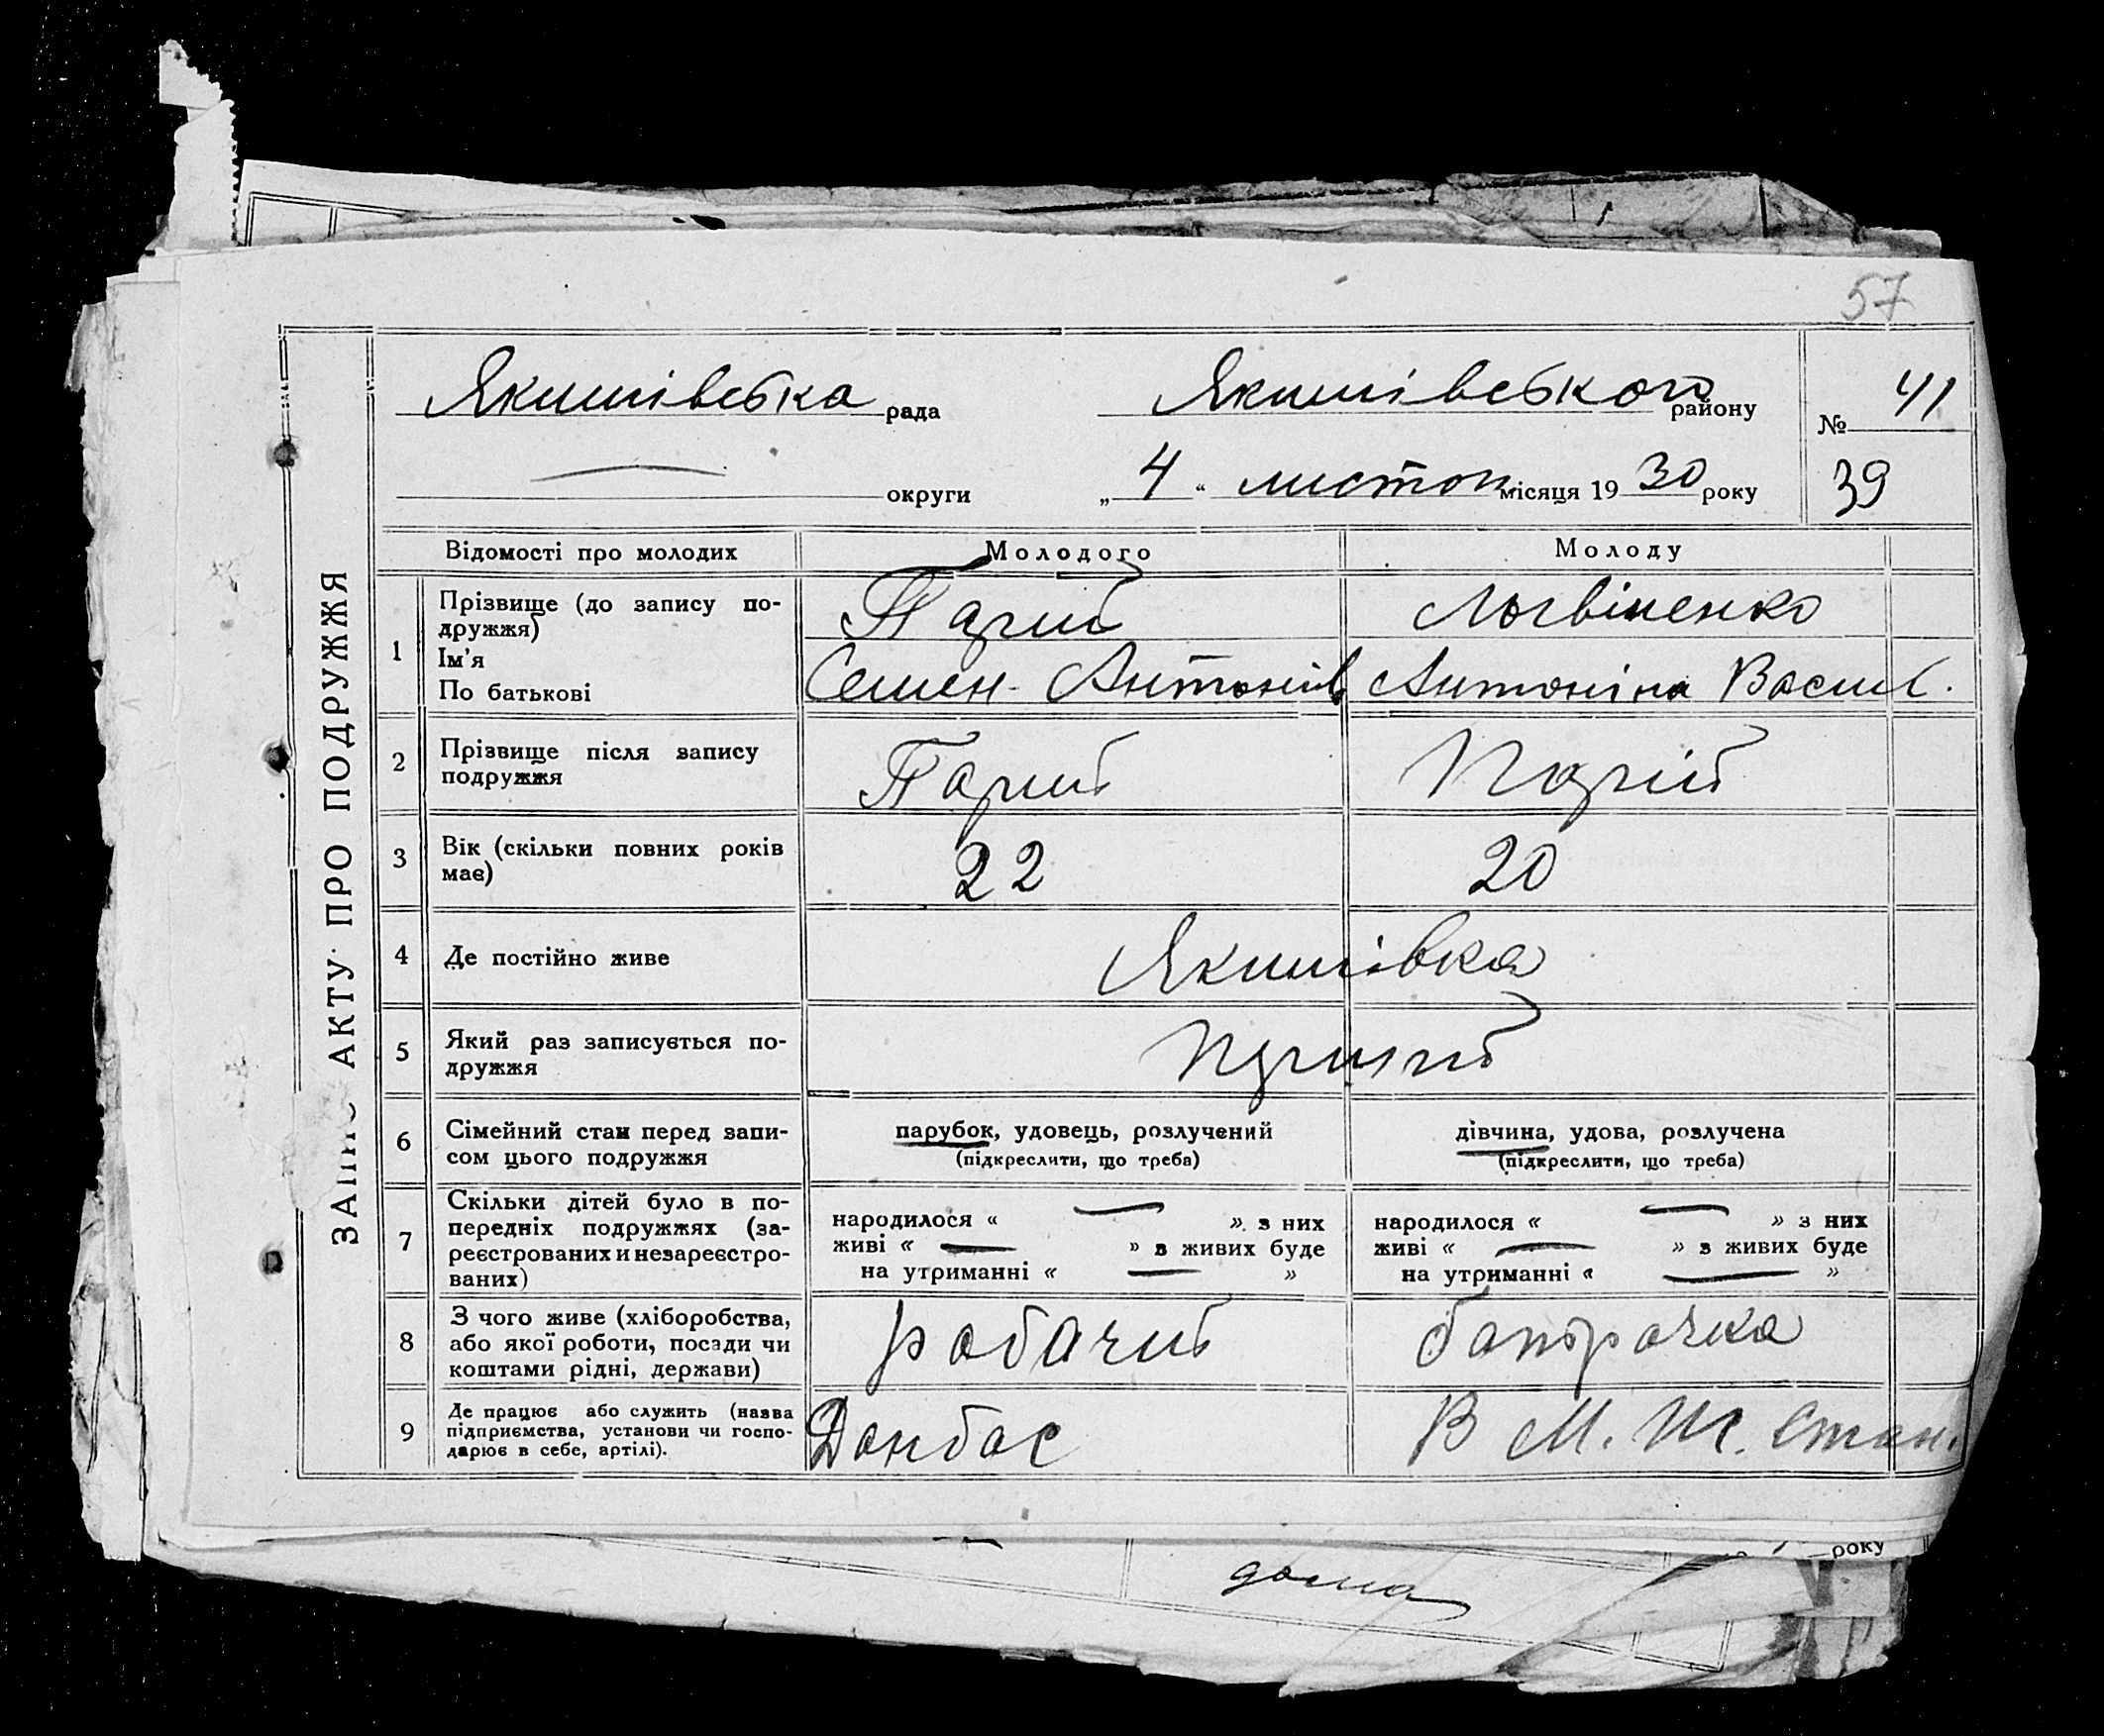 57
ЗАПИС АКТУ ПРО ПОДРУЖЖЯ
Якимівська рада Якимівського району № 41
округи „ 4 “ листоп місяця 19 30 року 39
Відомості про молодих Молодого Молоду
1 Прізвище (до запису по-
дружжя) Парий Логвіненко
Ім'я
По батькові Семен Антонів Антоніна Васил.
2 Прізвище після запису
подружжя Парий Парій
3 Вік (скільки повних років
має) 22 20
4 Де постійно живе Якимівка
5 Який раз записується по-
дружжя
6 Сімейний стан перед запи-
сом цього подружжя
парубок, удовець, розлучений дівчина, удова, розлучена
(підкреслити, що треба) (підкреслити, що треба)
7 Скільки дітей було в по-
передніх подружжях (за-
реєстрованих и незареєстро-
ваних)
народилося « » з них народилося « » з них
живі « » з живих буде живі « » з живих буде
на утриманні « » на утриманні « »
8 З чого живе (хліборобства,
або якої роботи, посади чи
коштами рідні, держави)
робочий
9 Де працює або служить (назва
підприємства, установи чи госпо-
дарює в себе, артілі).
Донбас В М. Т. Стан.
року
дома